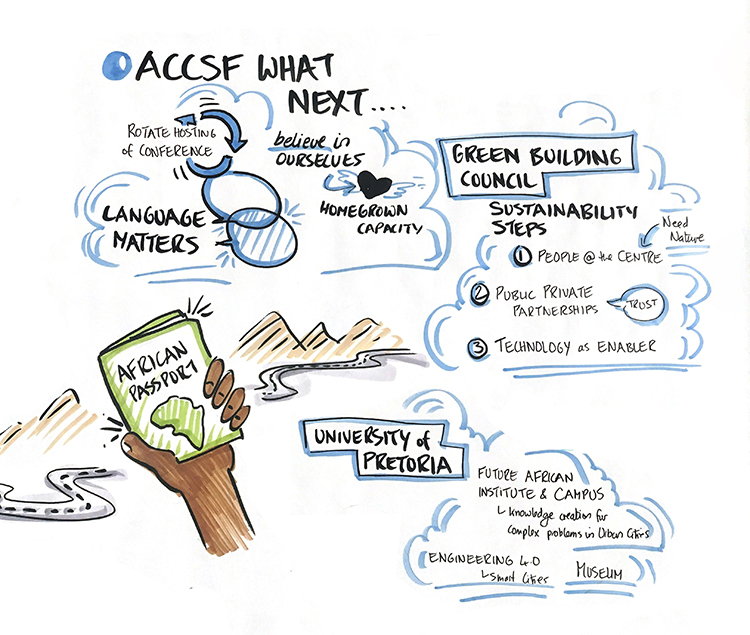 ACCSF WHAT
NEXT....
ROTATE HOSTING
of CONFERENCE
believe in
OURSELVES
HOMEGROWN
CAPACITY
LANGUAGE
MATTERS
GREEN BUILDING
COUNCIL
SUSTAINABILITY
STEPS
Need
Nature
1 PEOPLE @ the CENTRE
2 PUBLIC PRIVATE
PARTNERSHIPS
TRUST
3 TECHNOLOGY as ENABLER
AFRICAN
PASSPORT
UNIVERSITY of
PRETORIA
FUTURE AFRICAN
INSTITUTE & CAMPUS
knowledge creation for
complex problems in Urban Cities
ENGINEERING 4.0
Smart Cities
MUSEUM